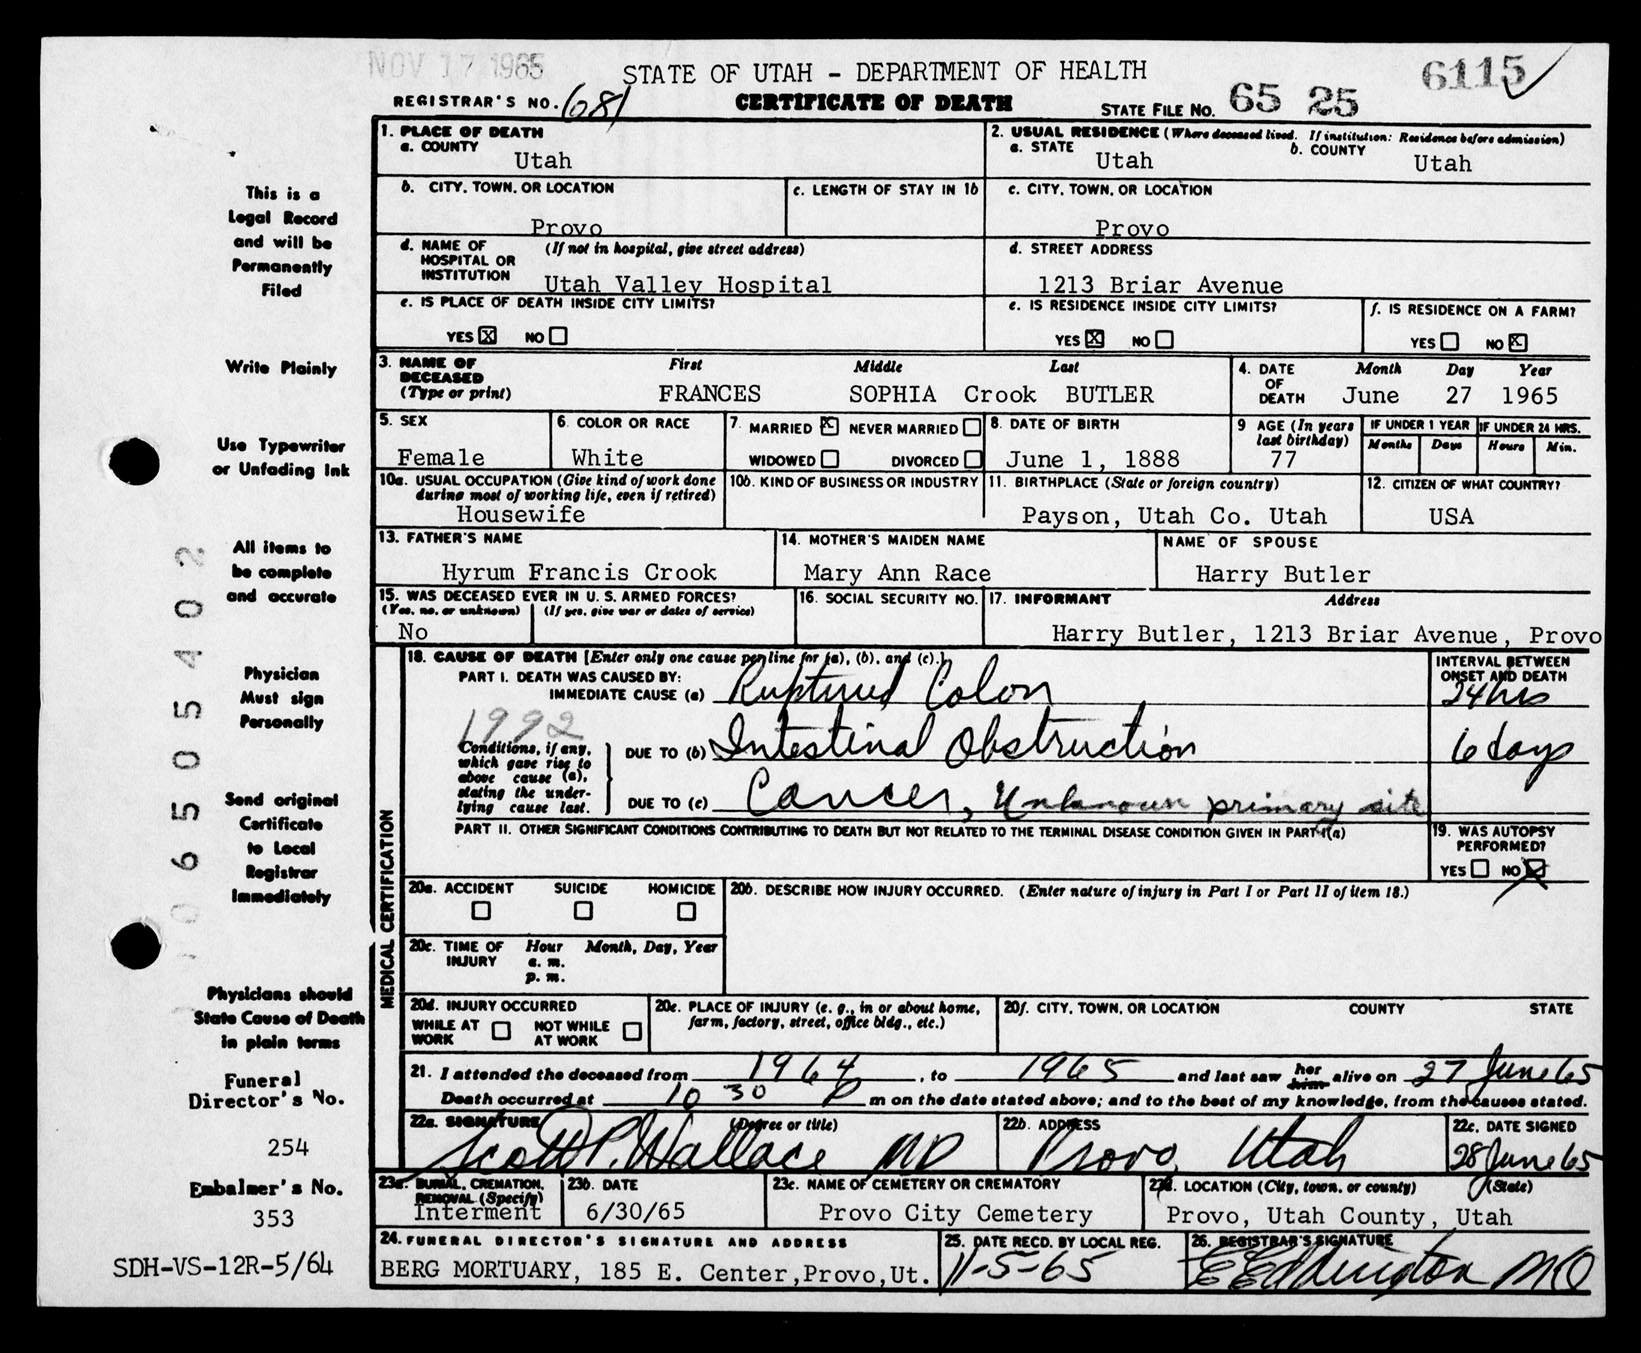 NOV 17 1965
STATE OF UTAH - DEPARTMENT OF HEALTH
6115
REGISTRAR'S NO. 681
CERTIFICATE OF DEATH
STATE FILE NO. 65 25
1. PLACE OF DEATH
a. COUNTY
Utah
2. USUAL RESIDENCE (Where deceased lived. If institution: Residence before admission)
a. STATE
Utah
b. COUNTY
Utah
b. CITY, TOWN, OR LOCATION
Provo
c. LENGTH OF STAY IN 1b
c. CITY, TOWN, OR LOCATION
Provo
d. NAME OF HOSPITAL OR INSTITUTION
(If not in hospital, give street address)
Utah Valley Hospital
d. STREET ADDRESS
1213 Briar Avenue
e. IS PLACE OF DEATH INSIDE CITY LIMITS?
YES X NO
e. IS RESIDENCE INSIDE CITY LIMITS?
YES X NO
f. IS RESIDENCE ON A FARM?
YES NO X
3. NAME OF DECEASED (Type or print)
First Middle Last
FRANCES SOPHIA Crook BUTLER
4. DATE OF DEATH
Month Day Year
June 27 1965
5. SEX
Female
6. COLOR OR RACE
White
7. MARRIED X NEVER MARRIED
WIDOWED DIVORCED
8. DATE OF BIRTH
June 1, 1888
9 AGE (In years last birthday)
77
IF UNDER 1 YEAR
Months Days
IF UNDER 24 HRS.
Hours Min.
10a. USUAL OCCUPATION (Give kind of work done during most of working life, even if retired)
Housewife
10b. KIND OF BUSINESS OR INDUSTRY
11. BIRTHPLACE (State or foreign country)
Payson, Utah Co. Utah
12. CITIZEN OF WHAT COUNTRY?
USA
13. FATHER'S NAME
Hyrum Francis Crook
14. MOTHER'S MAIDEN NAME
Mary Ann Race
NAME OF SPOUSE
Harry Butler
15. WAS DECEASED EVER IN U. S. ARMED FORCES?
(Yes, no, or unknown) (If yes, give war or dates of service)
No
16. SOCIAL SECURITY NO.
17. INFORMANT Address
Harry Butler, 1213 Briar Avenue, Provo
MEDICAL CERTIFICATION
18. CAUSE OF DEATH [Enter only one cause per line for (a), (b), and (c).]
INTERVAL BETWEEN ONSET AND DEATH
PART I. DEATH WAS CAUSED BY:
IMMEDIATE CAUSE (a) Ruptured Colon
24 hrs
1992
Conditions, if any, which gave rise to above cause (a), stating the underlying cause last.
DUE TO (b) Intestinal Obstruction
6 days
DUE TO (c) Cancer, Unknown primary site
PART II. OTHER SIGNIFICANT CONDITIONS CONTRIBUTING TO DEATH BUT NOT RELATED TO THE TERMINAL DISEASE CONDITION GIVEN IN PART I(a)
19. WAS AUTOPSY PERFORMED?
YES NO X
20a. ACCIDENT SUICIDE HOMICIDE
20b. DESCRIBE HOW INJURY OCCURRED. (Enter nature of injury in Part I or Part II of item 18.)
20c. TIME OF INJURY
Hour Month, Day, Year
a. m.
p. m.
20d. INJURY OCCURRED
WHILE AT WORK NOT WHILE AT WORK
20e. PLACE OF INJURY (e. g., in or about home, farm, factory, street, office bldg., etc.)
20f. CITY, TOWN, OR LOCATION COUNTY STATE
21. I attended the deceased from 1964, to 1965 and last saw her him alive on 27 June 65
Death occurred at 10 30 P m on the date stated above; and to the best of my knowledge, from the causes stated.
22a. SIGNATURE (Degree or title)
Scott P. Wallace MD
22b. ADDRESS
Provo, Utah
22c. DATE SIGNED
28 June 65
23a. BURIAL, CREMATION, REMOVAL (Specify)
Interment
23b. DATE
6/30/65
23c. NAME OF CEMETERY OR CREMATORY
Provo City Cemetery
23d. LOCATION (City, town, or county) (State)
Provo, Utah County, Utah
24. FUNERAL DIRECTOR'S SIGNATURE AND ADDRESS
BERG MORTUARY, 185 E. Center, Provo, Ut.
25. DATE RECD. BY LOCAL REG.
11-5-65
26. REGISTRAR'S SIGNATURE
This is a
Legal Record
and will be
Permanently
Filed
Write Plainly
Use Typewriter
or Unfading Ink
All items to
be complete
and accurate
Physician
Must sign
Personally
Send original
Certificate
to Local
Registrar
Immediately
Physicians should
State Cause of Death
in plain terms
Funeral
Director's No.
254
Embalmer's No.
353
SDH-VS-12R-5/64
0 6 5 5 0 5 4 0 2